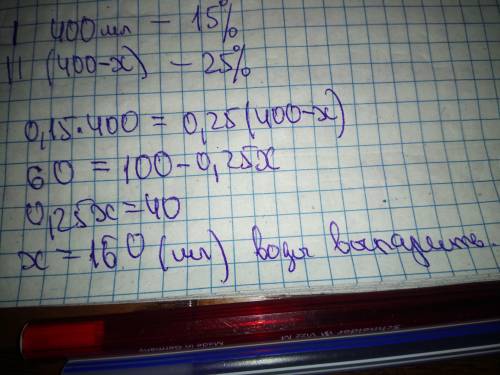 I 400 мл – 15%
II (400-x) – 25%
0,15·400 = 0,25(400-x)
60 = 100-0,25x
0,25x=40
x = 160 (мл) воды выпарить
Schneider Vizz M
Made in Germany